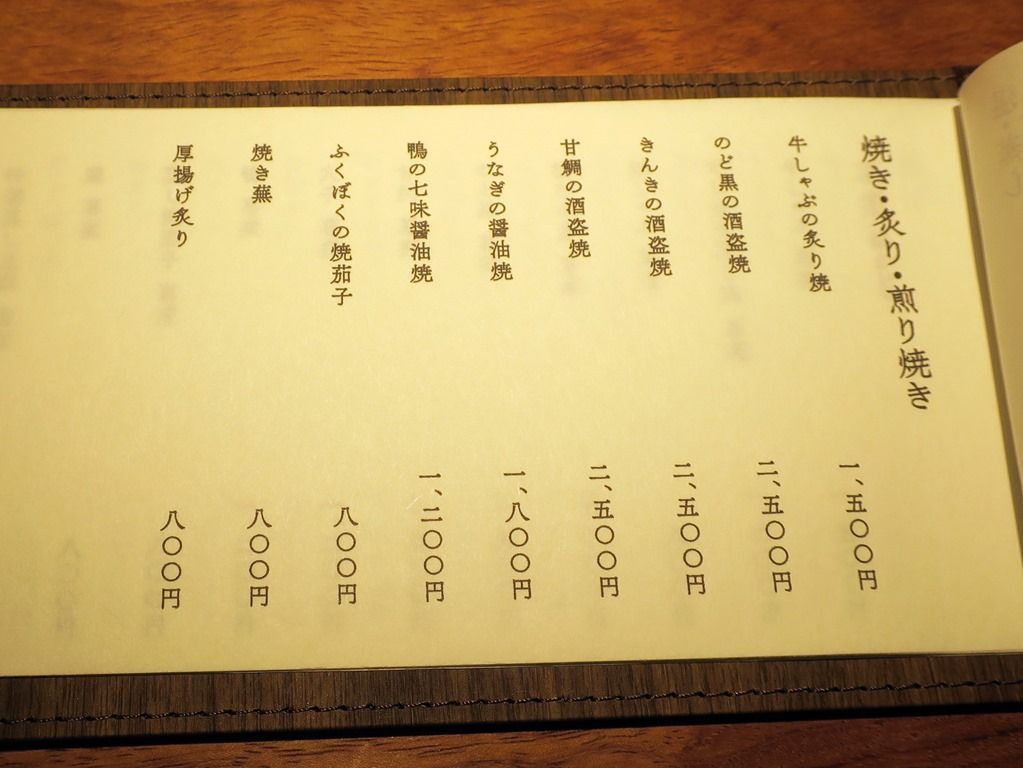 焼き・炙り・煎り焼き
牛しゃぶの炙り焼 一、五〇〇円
のど黒の酒盗焼 二、五〇〇円
きんきの酒盗焼 二、五〇〇円
甘鯛の酒盗焼 二、五〇〇円
うなぎの醤油焼 一、八〇〇円
鴨の七味醤油焼 一、二〇〇円
ふくぼくの焼茄子 八〇〇円
焼き蕪 八〇〇円
厚揚げ炙り 八〇〇円